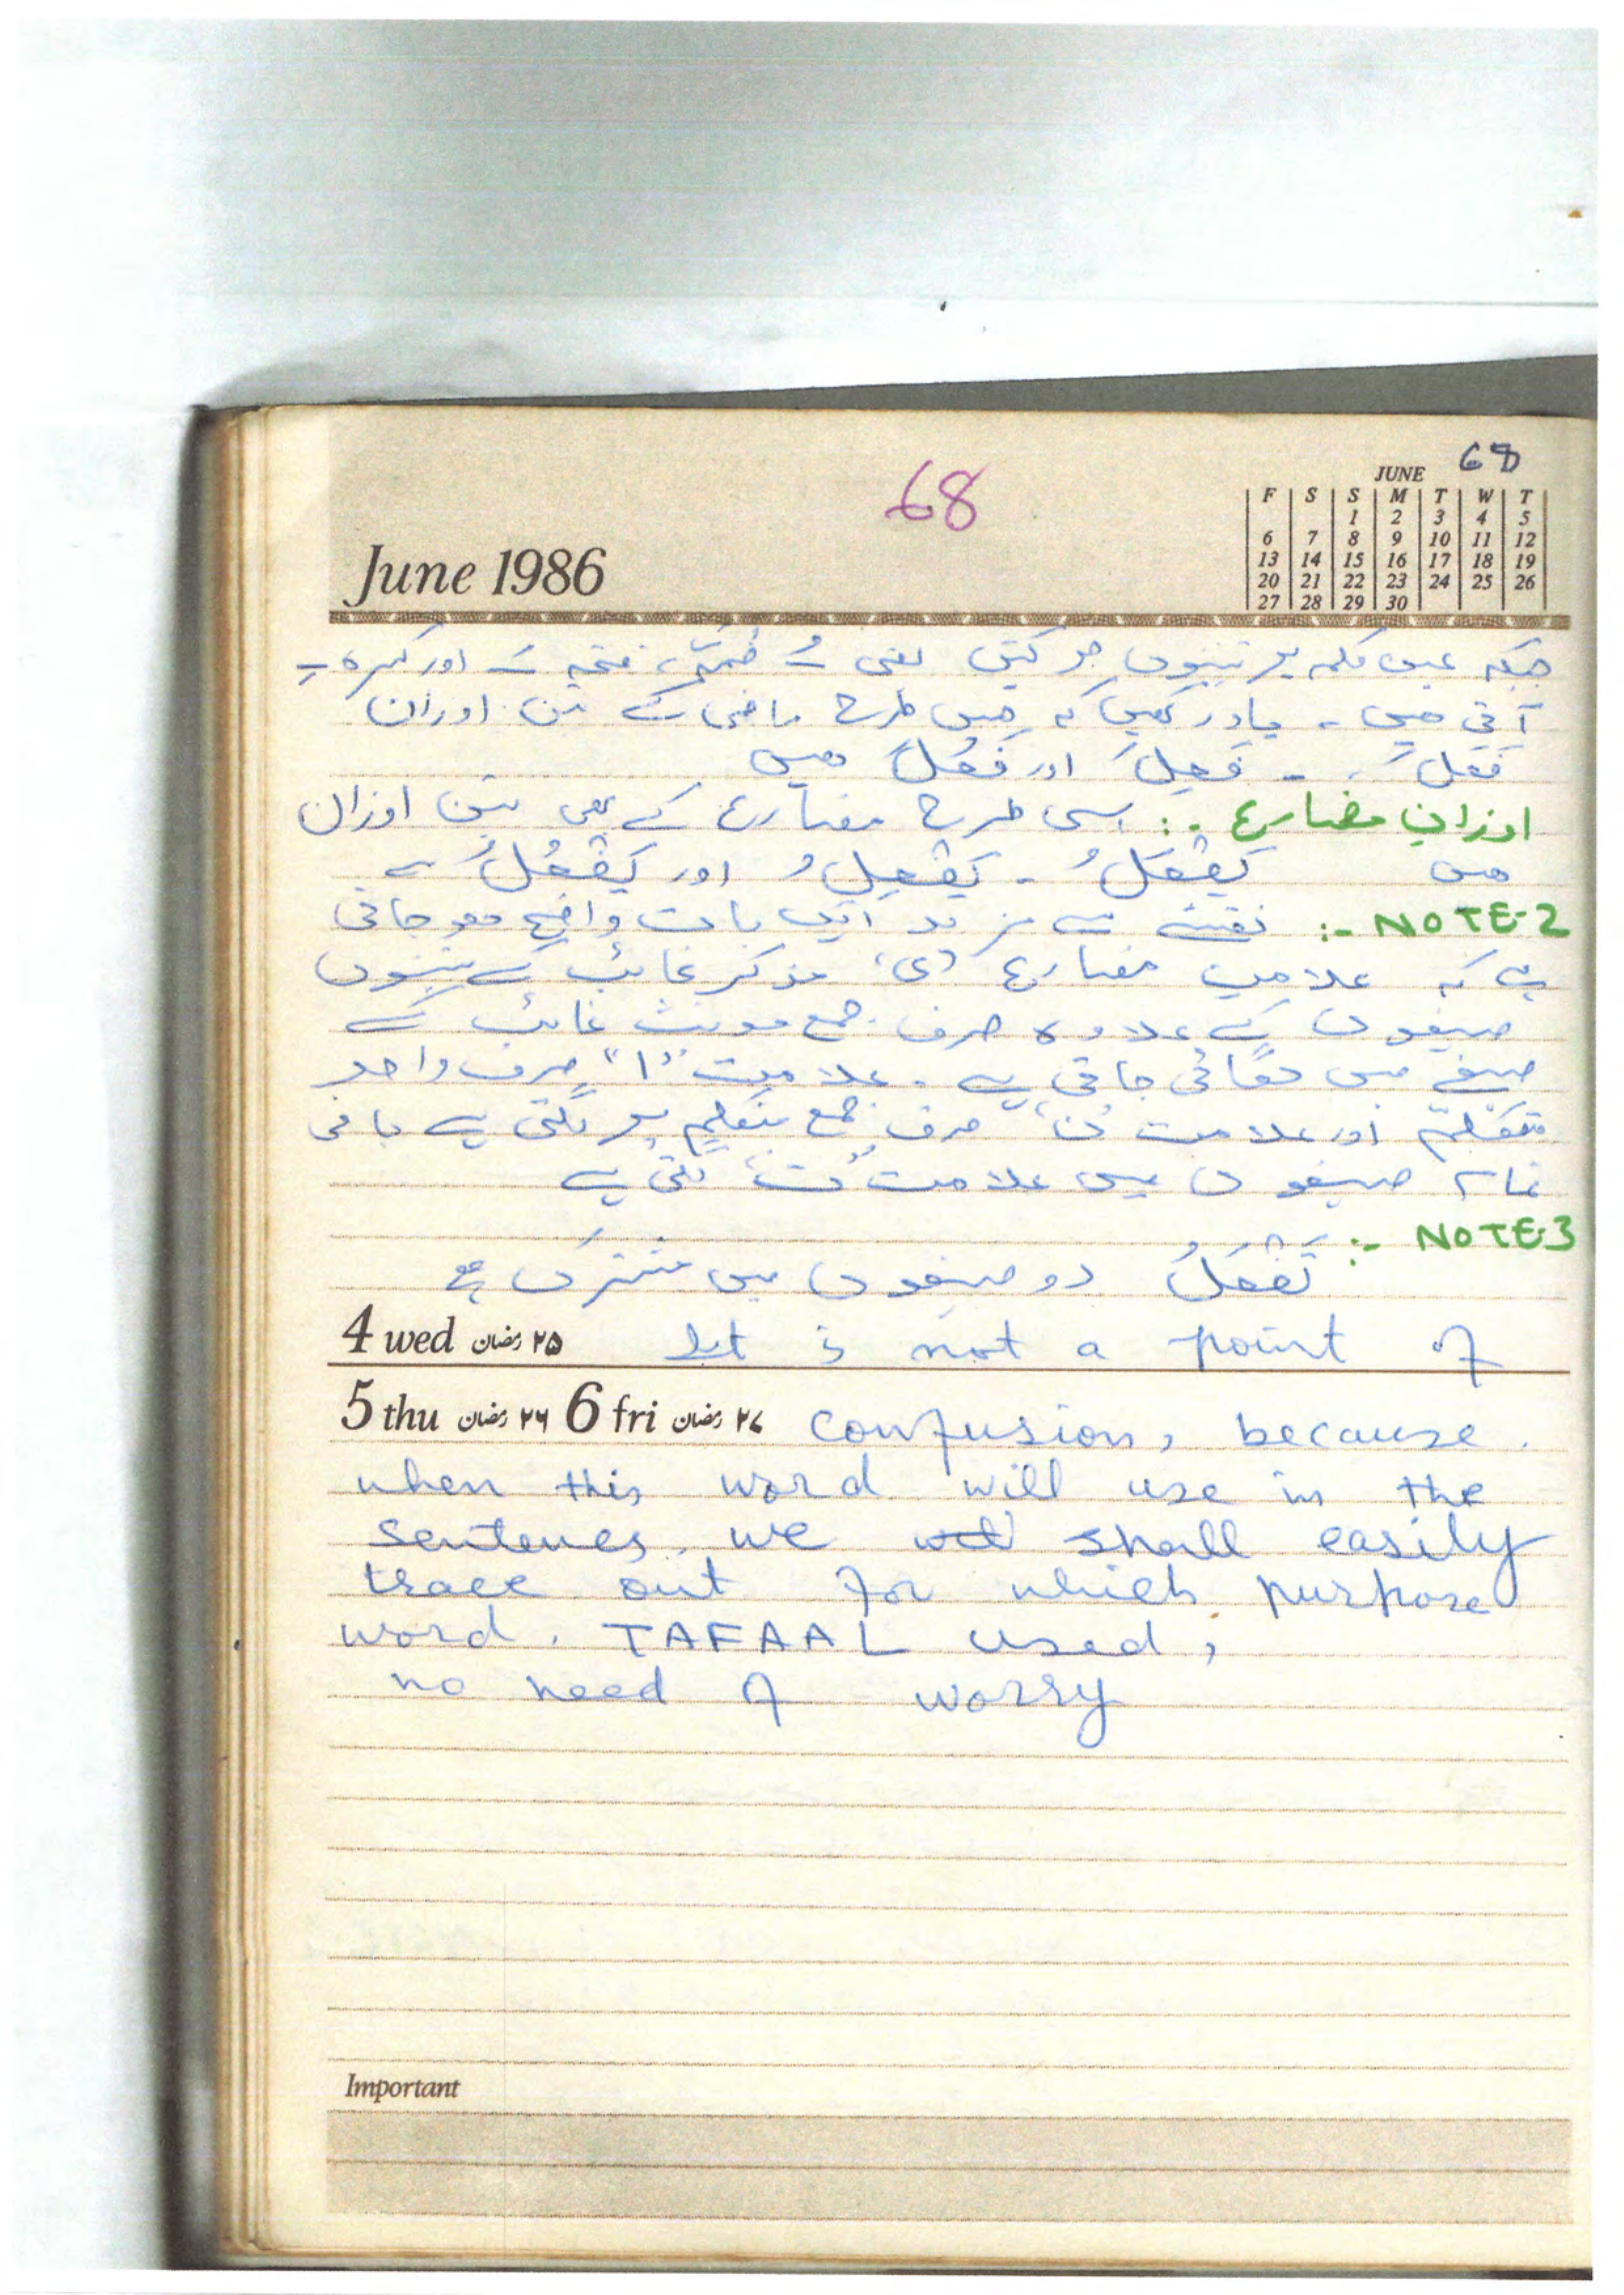 68
68
JUNE
F S S M T W T
1 2 3 4 5
6 7 8 9 10 11 12
13 14 15 16 17 18 19
20 21 22 23 24 25 26
27 28 29 30
June 1986
جبکہ عین کلمہ پر تینوں حرکتیں یعنی ـُ ضمّہ، فتحہ ـَ اور کسرہ ـِ
آتی ہیں ۔ یاد رکھیں کہ جس طرح ماضی کے تین اوزان
فَعَلَ ۔ فَعِلَ اور فَعُلَ ہیں
اوزانِ مضارع :۔ اسی طرح مضارع کے بھی تین اوزان
ہیں یَفْعَلُ ۔ یَفْعِلُ اور یَفْعُلُ ۔
NOTE-2 :- نقشے سے مزید ایک بات واضح ہو جاتی
ہے کہ علامت مضارع (ی) مذکر غائب کے تینوں
صیغوں کے علاوہ صرف جمع مونث غائب کے
صیغے میں لگائی جاتی ہے ۔ علامت "ا" صرف واحد
متکلم اور علامت "ن" صرف جمع متکلم پر لگتی ہے باقی
تمام صیغوں میں علامت "ت" لگتی ہے
NOTE-3 :-
تَفْعَلُ دو صیغوں میں مشترک ہے
4 wed ۲۵ رمضان It is not a point of
5 thu ۲۶ رمضان 6 fri ۲۷ رمضان confusion, because
when this word will use in the
sentences we will shall easily
trace out for which purpose
word. TAFAAL used,
no need of worry
Important